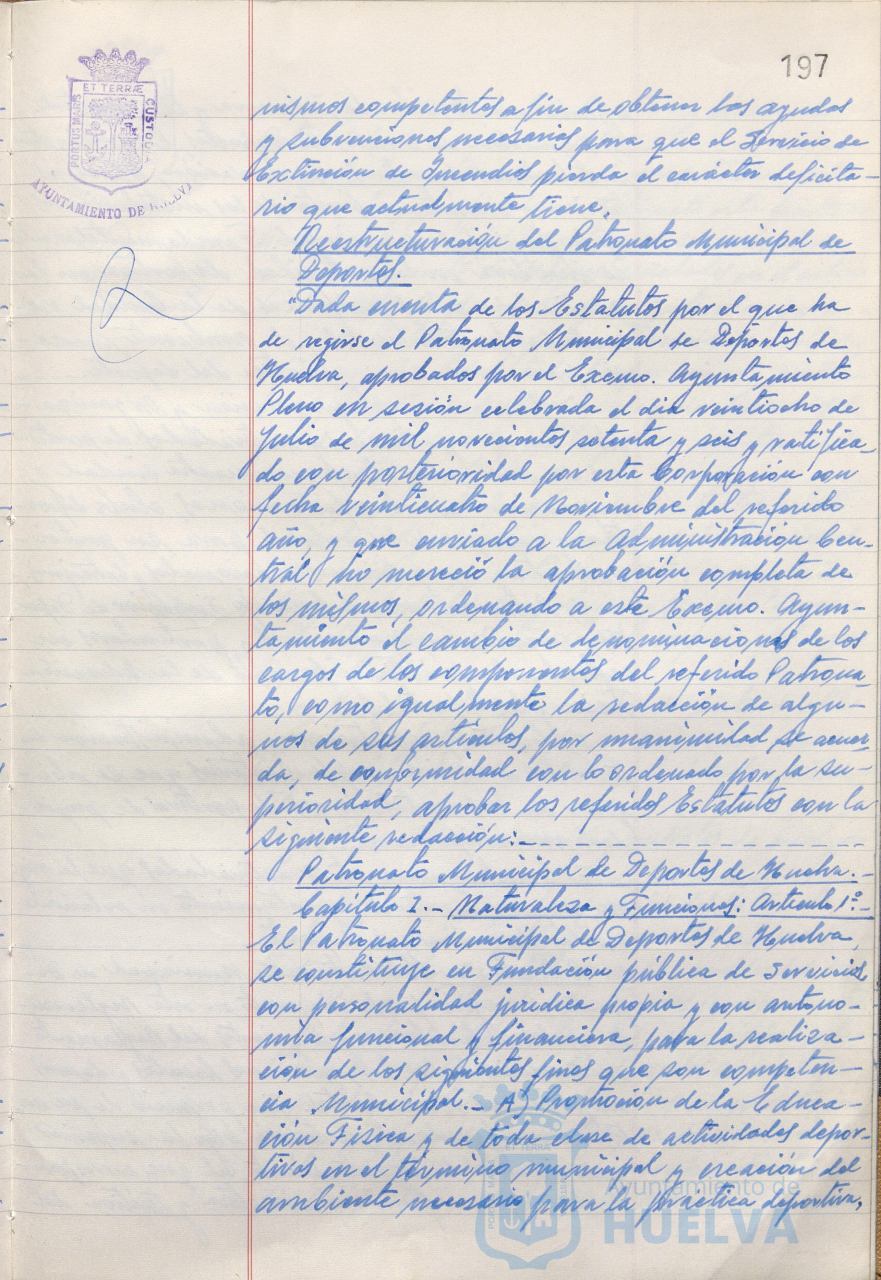 197
ET TERRÆ
PORTUS MARIS
CUSTODIA
AYUNTAMIENTO DE HUELVA
nismos competentes a fin de obtener las ayudas
y subvenciones necesarias para que el Servicio de
Extinción de Incendios pierda el carácter deficita-
rio que actualmente tiene.
Reestructuración del Patronato Municipal de
Deportes.
"Dada cuenta de los Estatutos por el que ha
de regirse el Patronato Municipal de Deportes de
Huelva, aprobados por el Excmo. Ayuntamiento
Pleno en sesión celebrada el dia veintiocho de
Julio de mil novecientos setenta y seis y ratifica-
do con posterioridad por esta Corporación con
fecha veinticuatro de Noviembre del referido
año, y que enviado a la Administración Cen-
tral no mereció la aprobación completa de
los mismos, ordenando a este Excmo. Ayun-
tamiento el cambio de denominaciones de los
cargos de los componentes del referido Patrona-
to, como igualmente la redacción de algu-
nos de sus artículos, por unanimidad se acuer-
da, de conformidad con lo ordenado por la su-
perioridad, aprobar los referidos Estatutos con la
siguiente redacción:-
Patronato Municipal de Deportes de Huelva.-
Capítulo I.- Naturaleza y Funciones: Artículo 1º.-
El Patronato Municipal de Deportes de Huelva,
se constituye en Fundación pública de Servicios
con personalidad jurídica propia y con autono-
mía funcional y financiera, para la realiza-
ción de los siguientes fines que son competen-
cia Municipal.- A) Promoción de la Educa-
ción Física y de toda clase de actividades depor-
tivas en el término municipal y creación del
ambiente necesario para la práctica deportiva,
Ayuntamiento de
HUELVA